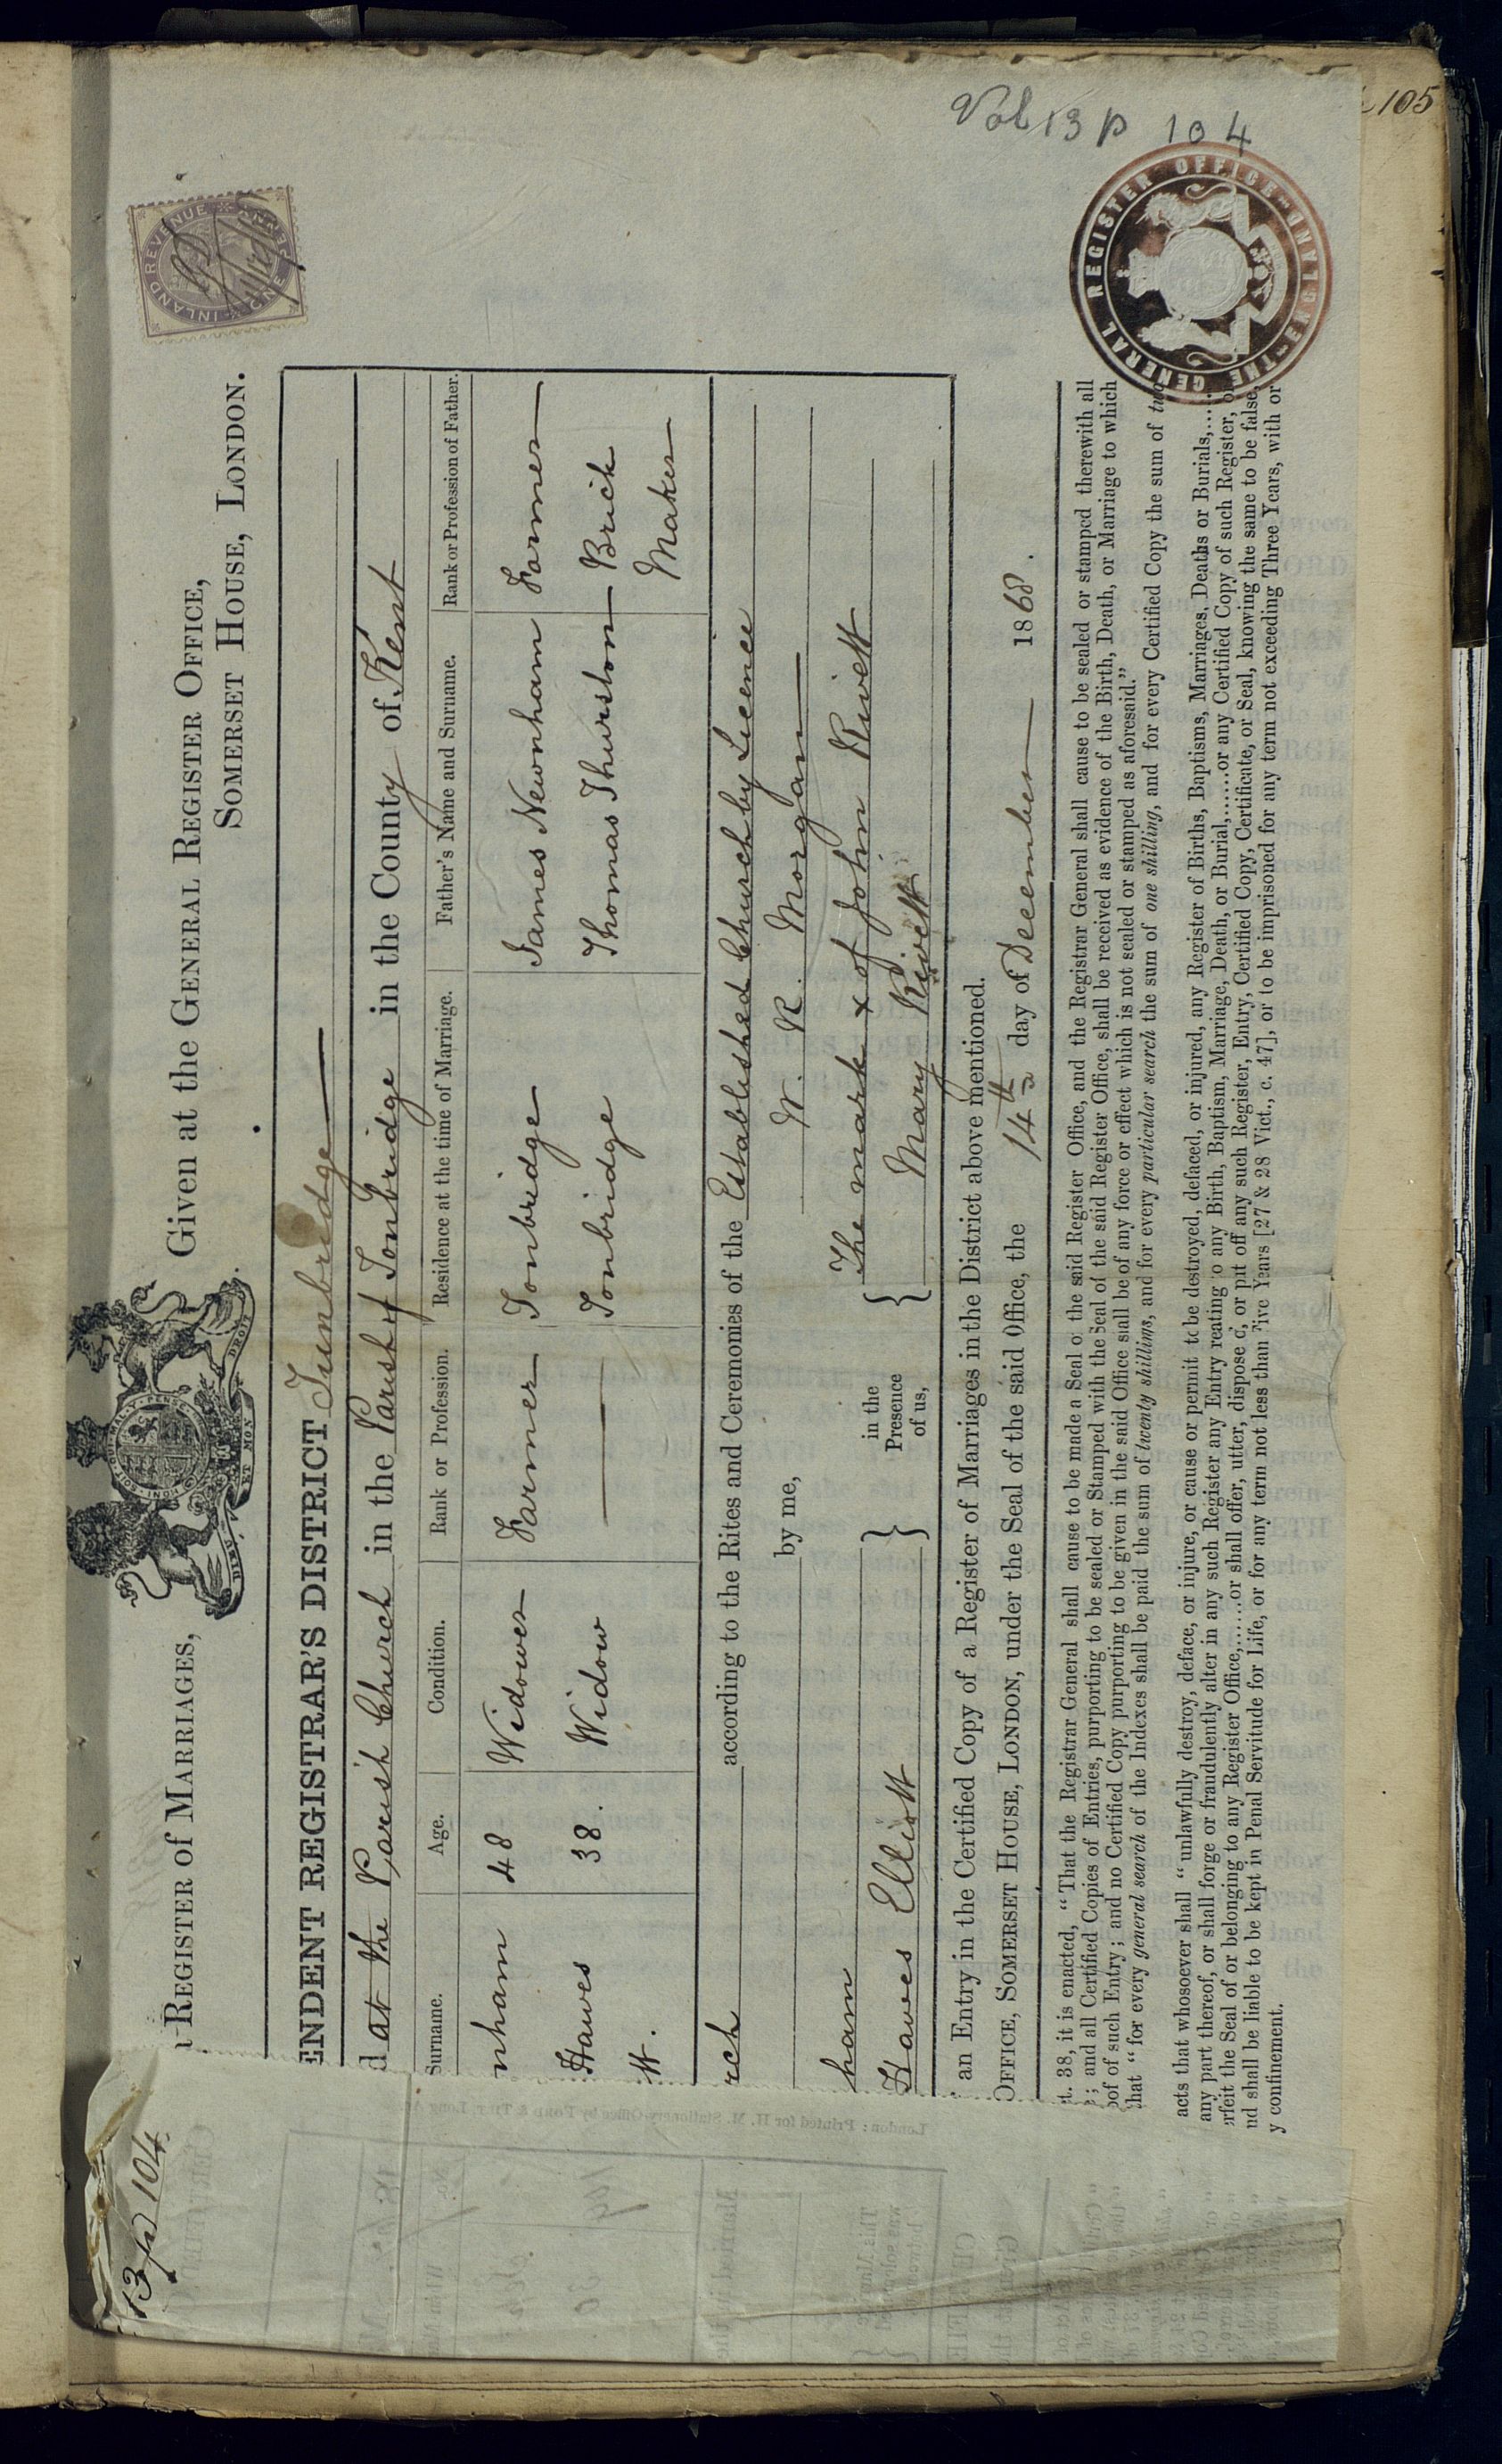 Vol 13 p 104
105
13 p 104
REGISTER OF MARRIAGES, Given at the GENERAL REGISTER OFFICE,
SOMERSET HOUSE, LONDON.
INLAND REVENUE
ONE PENNY
HONI SOIT QUI MAL Y PENSE
DIEU ET MON DROIT
ENDENT REGISTRAR'S DISTRICT Tunbridge
d at the Parish Church in the Parish of Tonbridge in the County of Kent
Surname. Age. Condition. Rank or Profession. Residence at the time of Marriage. Father's Name and Surname. Rank or Profession of Father.
nham 48 Widower Farmer Tonbridge James Newnham Farmer
Hawes 38. Widow Tonbridge Thomas Thurston Brick
tt. Maker
rch according to the Rites and Ceremonies of the Established Church by Licence
by me, W. R. Morgan
ham in the The mark x of John Rivett
Presence
Hawes Elliott of us, Mary Rivett
an Entry in the Certified Copy of a Register of Marriages in the District above mentioned.
OFFICE, SOMERSET HOUSE, LONDON, under the Seal of the said Office, the 14th day of December 1868.
t. 38, it is enacted, "That the Registrar General shall cause to be made a Seal of the said Register Office, and the Registrar General shall cause to be sealed or stamped therewith all
; and all Certified Copies of Entries, purporting to be sealed or Stamped with the Seal of the said Register Office, shall be received as evidence of the Birth, Death, or Marriage to which
oof of such Entry; and no Certified Copy purporting to be given in the said Office shall be of any force or effect which is not sealed or stamped as aforesaid."
hat "for every general search of the Indexes shall be paid the sum of twenty shillings, and for every particular search the sum of one shilling, and for every Certified Copy the sum of two
acts that whosoever shall "unlawfully destroy, deface, or injure, or cause or permit to be destroyed, defaced, or injured, any Register of Births, Baptisms, Marriages, Deaths or Burials,......
any part thereof, or shall forge or fraudulently alter in any such Register any Entry relating to any Birth, Baptism, Marriage, Death, or Burial,......or any Certified Copy of such Register, or
rfeit the Seal of or belonging to any Register Office,......or shall offer, utter, dispose of, or put off any such Register, Entry, Certified Copy, Certificate, or Seal, knowing the same to be false,
nd shall be liable to be kept in Penal Servitude for Life, or for any term not less than Five Years [27 & 28 Vict., c. 47], or to be imprisoned for any term not exceeding Three Years, with or
y confinement.
THE GENERAL REGISTER OFFICE ENGLAND
London: Printed for H. M. Stationery Office by FORD & TILT, Long Acre.